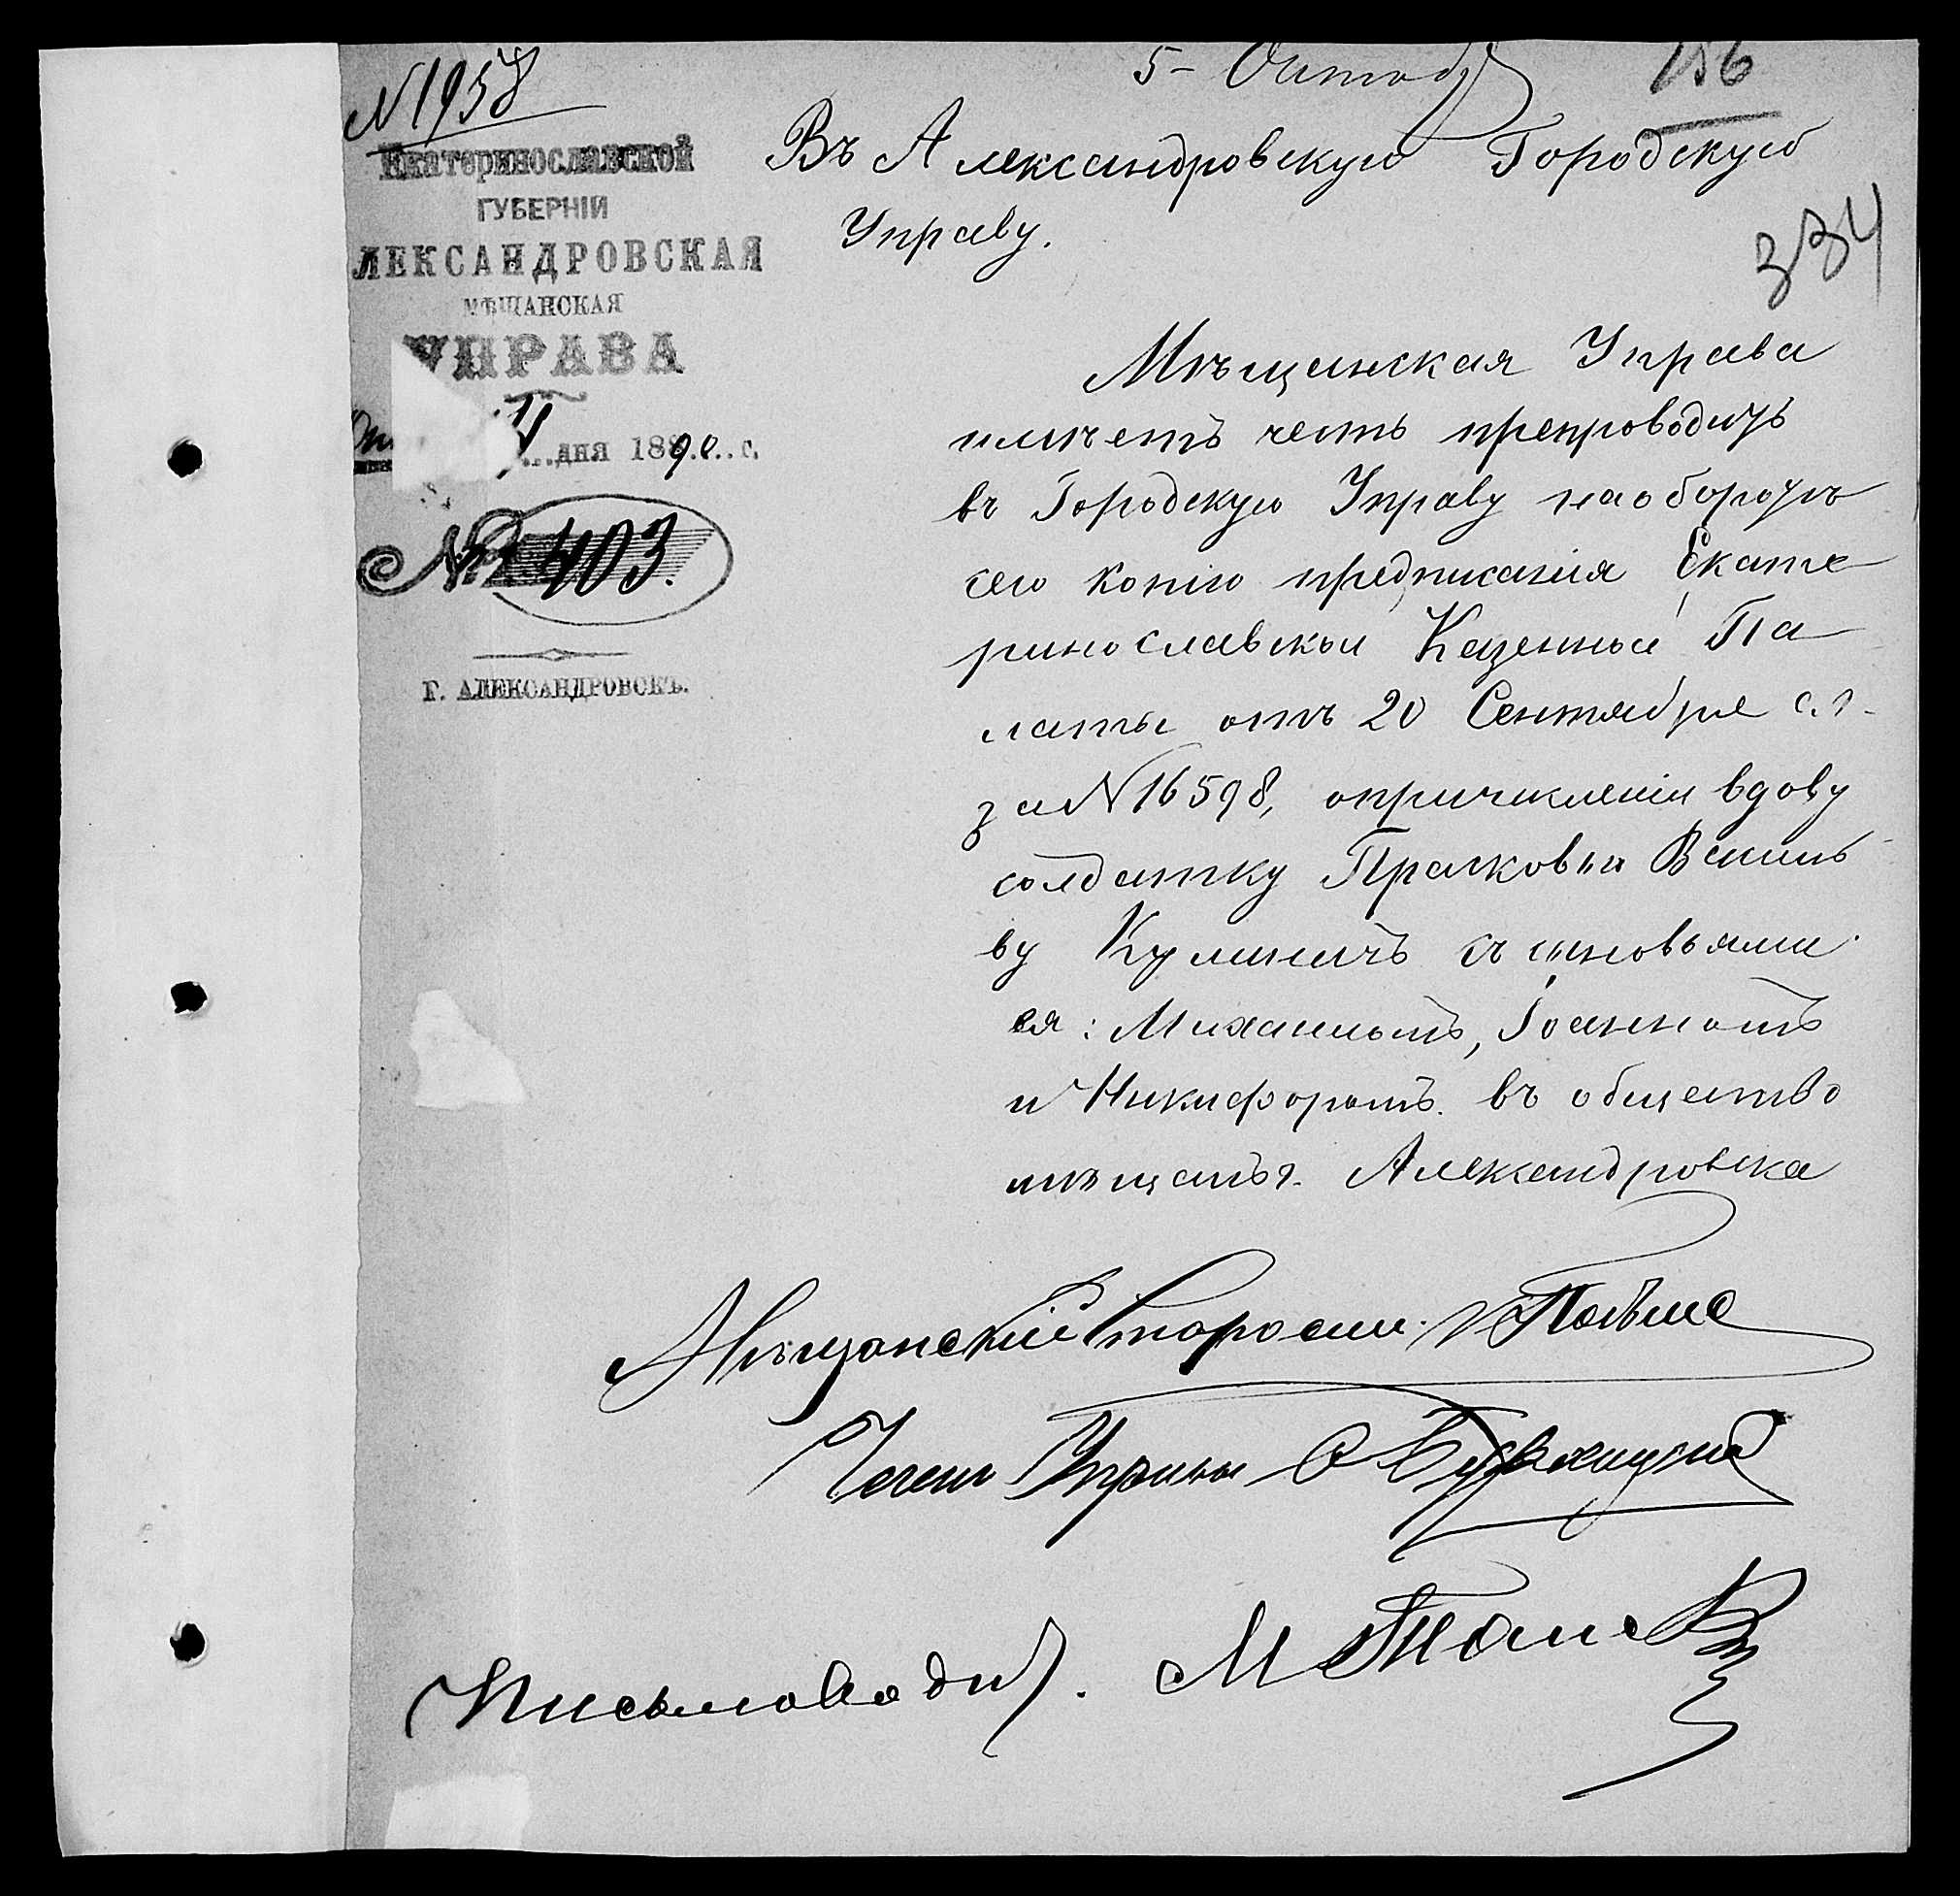 5 Октяб
156
N 1958
Екатеринославской
ГУБЕРНІИ
ЛЕКСАНДРОВСКАЯ
МѢЩАНСКАЯ
УПРАВА
дня 1890 г.
№ 403.
Г. АЛЕКСАНДРОВСКЪ.
Въ Александровскую Городскую
Управу.
334
Мѣщанская Управа
имѣетъ честь препроводить
въ Городскую Управу наоборотѣ
сего копію предписанія Екате
ринославской Казенной Па
латы отъ 20 Сентября с.г.
за N 16598, опричисленіи вдову
солдатку Прасковью Василь
ву Кулиничъ съ сыновьями
ея: Михаиломъ, Іоанномъ
и Никифоромъ въ общество
мѣщанъ г. Александровска
Мѣщанскій Старости.
Члень Управы
Письмовод